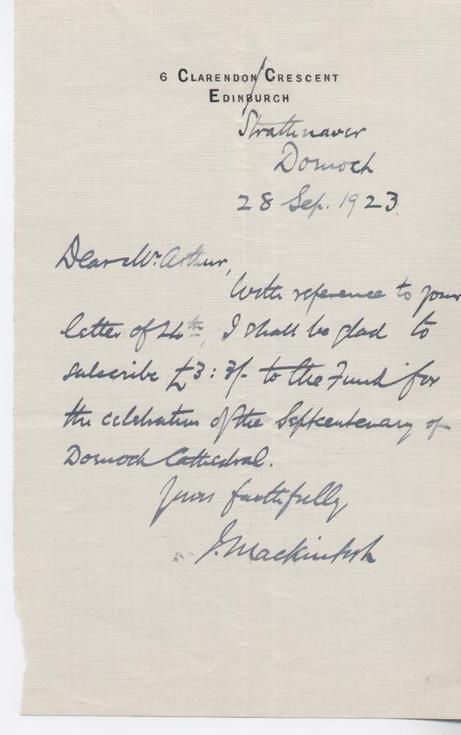 6 CLARENDON CRESCENT
EDINBURGH
Strathnaver
Dornoch
28 Sep. 1923.
Dear Mr. Arthur,
With reference to your
letter of 24th, I shall be glad to
subscribe £3:3/- to the Fund for
the celebration of the Septcentenary of
Dornoch Cathedral.
Yours faithfully
J. Mackintosh